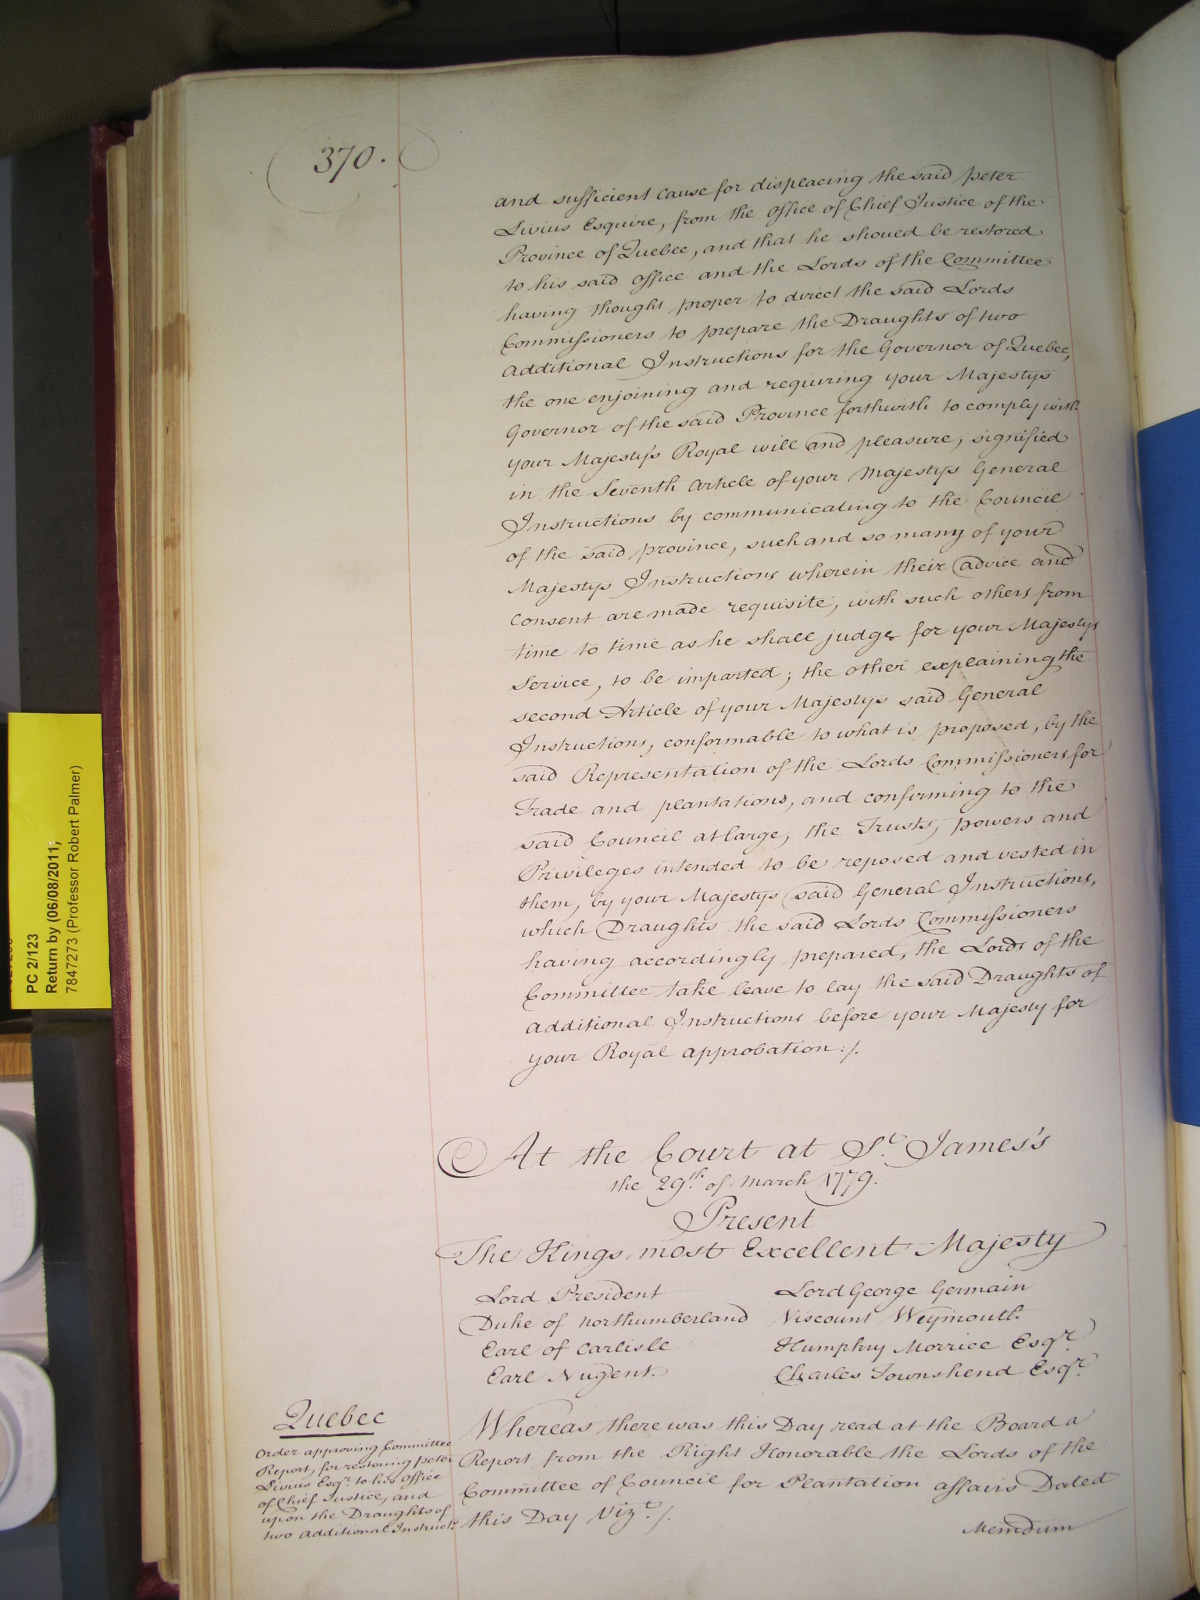 370.
and sufficient Cause for displacing the said Peter
Livius Esquire, from the Office of Chief Justice of the
Province of Quebec, and that he should be restored
to his said Office and the Lords of the Committee
having thought proper to direct the said Lords
Commissioners to prepare the Draughts of two
Additional Instructions for the Governor of Quebec,
the one enjoining and requiring your Majestys
Governor of the said Province forthwith to comply with
your Majesty's Royal will and pleasure, signified
in the Seventh Article of your Majestys General
Instructions by communicating to the Council
of the said province, such and so many of your
Majestys Instructions wherein their advice and
Consent are made requisite, with such others from
time to time as he shall judge for your Majestys
Service, to be imparted; the other explaining the
second Article of your Majestys said General
Instructions, conformable to what is proposed, by the
said Representation of the Lords Commissioners for
Trade and plantations, and confirming to the
said Council at large, the Trusts, powers and
Privileges intended to be reposed and vested in
them, by your Majestys said General Instructions,
which Draughts the said Lords Commissioners
having accordingly prepared, the Lords of the
Committee take leave to lay the said Draughts of
Additional Instructions before your Majesty for
your Royal approbation :/.
At the Court at St. James's
the 29th. of March 1779.
Present
The Kings most Excellent Majesty
Lord President Lord George Germain
Duke of Northumberland Viscount Weymouth.
Earl of Carlisle Humphry Morrice Esqr.
Earl Nugent. Charles Townshend Esqr.
Quebec
Order approving Committee
Report, for restoring Peter
Livius Esqr. to his Office
of Chief Justice, and
upon the Draughts of
two Additional Instructs.
Whereas there was this Day read at the Board a
Report from the Right Honorable the Lords of the
Committee of Council for Plantation affairs Dated
this Day Vizt. /.
PC 2/123
Return by (06/08/2011;
7847273 (Professor Robert Palmer)